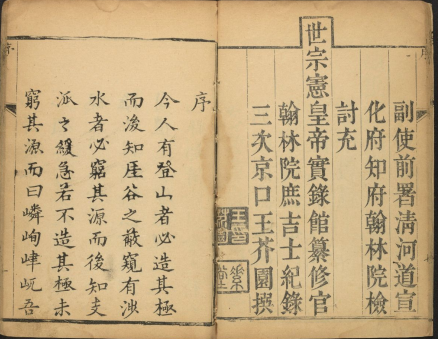 副使前署清河道宣
化府知府翰林院檢
討充
世宗憲皇帝實錄館纂修官
翰林院庶吉士紀錄
三次京口王芥園撰
序
今人有登山者必造其極
而後知厓谷之蔽窺有涉
水者必窮其源而後知支
派之緩急若不造其極未
窮其源而曰嶙峋崨屼吾